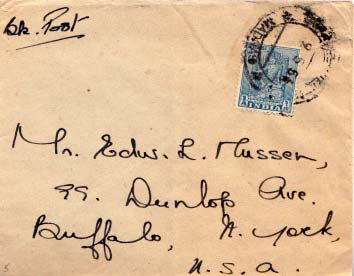 Bk. Post
INDIA
Mr. Edw. L. Musser,
99. Dunlop Ave.
Buffalo, N. York,
U.S.A.